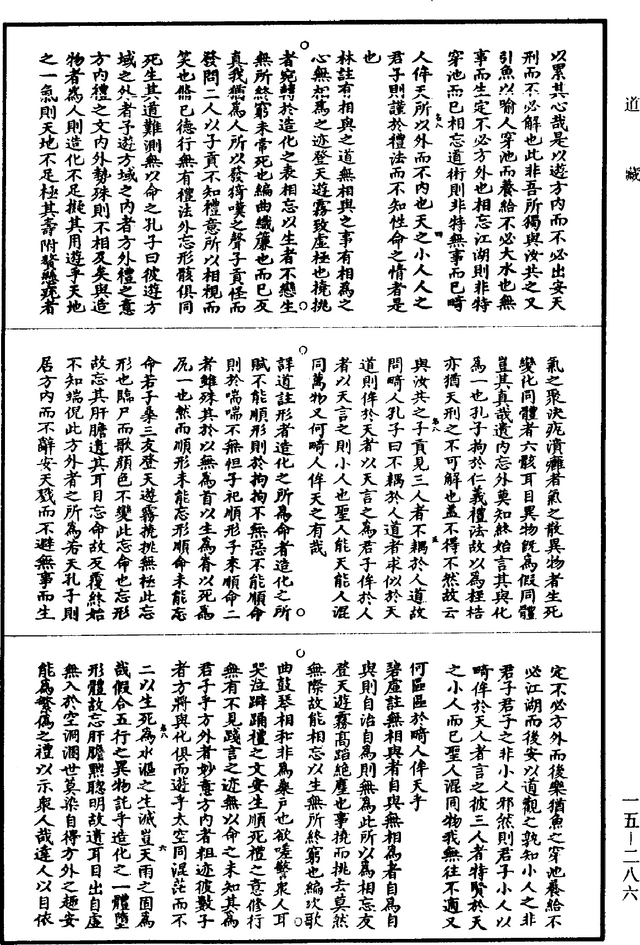 道藏
以累其心哉是以遊方内而不必出安天
刑而不必解也此非吾所獨與汝共之又
引魚以喻人穿池而養給不必大水也無
事而生定不必方外也相忘江湖則非特
穿池而已相忘道術則非特無事而已畸
人侔天所以外而不内也天之小人人之
君子則謹於禮法而不知性命之情者是
也
林註有相與之道無相與之事有相為之
心無相為之迹登天遊霧致虚極也撓挑
者宛轉於造化之表相忘以生者不戀生
無所終窮未常死也編曲織簾也而已反
真我猶為人所以發猗嘆之聲子貢怪而
發問二人以子貢不知禮意所以相視而
笑也脩已德行無有禮法外忘形骸俱同
死生其道難測無以命之孔子曰彼遊方
域之外者予遊方域之内者方外禮之意
方内禮之文内外勢殊則不相及矣與造
物者為人則造化不足擬其用遊乎天地
之一氣則天地不足極其壽附贅懸疣者
氣之聚決𤴯潰癰者氣之散異物者生死
變化同體者六骸耳目異物既為假同體
豈其真哉遺内忘外莫知終始言其與化
為一也孔子拘於仁義禮法故以為桎梏
亦猶天刑之不可解也蓋不得不然故云
與汝共之子貢見三人者不耦於人道故
問畸人孔子曰不耦於人道者求似於天
道則侔於天者以天言之為君子侔於人
者以天言之則小人也聖人能天能人混
同萬物又何畸人侔天之有哉
詳道註形者造化之所為命者造化之所
賦不能順形則於拘拘不無惡不能順命
則於喘喘不無怛子祀順形子來順命二
者雖殊其於以無為首以生為脊以死為
尻一也然而順形未能忘形順命未能忘
命若子桑三友登天遊霧撓挑無極此忘
形也臨尸而歌顔色不變此忘命也忘形
故忘其肝膽遺其耳目忘命故反覆終始
不知端倪此方外者之所為若夫孔子則
居方内而不辭安天戮而不避無事而生
定不必方外而後樂猶魚之穿池養給不
必江湖而後安以道觀之孰知小人之非
君子君子之非小人邪然則君子小人以
畸侔於天人者言之彼三人者特賢於天
之小人而已聖人混同物我無往不適又
何區區於畸人侔天乎
碧虚註無相與者自與無相為者自為自
與則自治自為則無為此所以為相忘友
登天遊霧高蹈絶塵也事撓而挑去莫然
無際故能相忘以生無所終窮也編次歌
曲鼓琴相和非為桑戸也欲嗟警衆人耳
哭泣躃踊禮之文安生順死禮之意修行
無有不見踐言之迹無以命之未知其為
君子乎方外者妙意方内者粗迹彼數子
者方將與化俱而遊乎太空同混茫而不
二以生死為水漚之生滅豈天雨之固為
哉假合五行之異物託乎造化之一體墮
形體故忘肝膽黜聰明故遺耳目出自虚
無入於空洞溷世莫染自得方外之趣安
能為繁偽之禮以示衆人哉達人以自依
一五－二八六